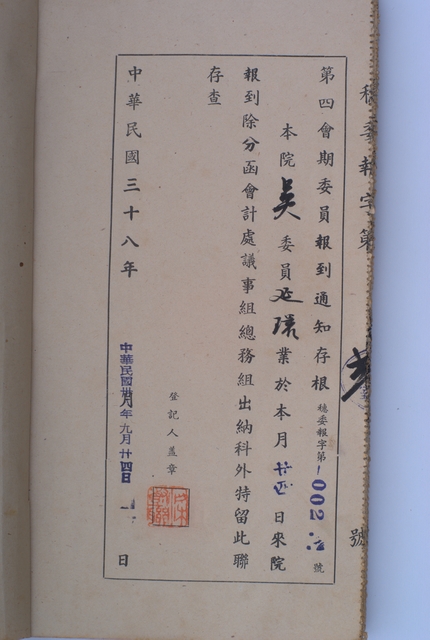 穗委報字第
號
第四會期委員報到通知存根 穗委報字第 002 號
本院吳委員延環業於本月廿四日來院
報到除分函會計處議事組總務組出納科外特留此聯
存查
登記人蓋章
中華民國三十八年
日
中華民國卅八年九月廿四日